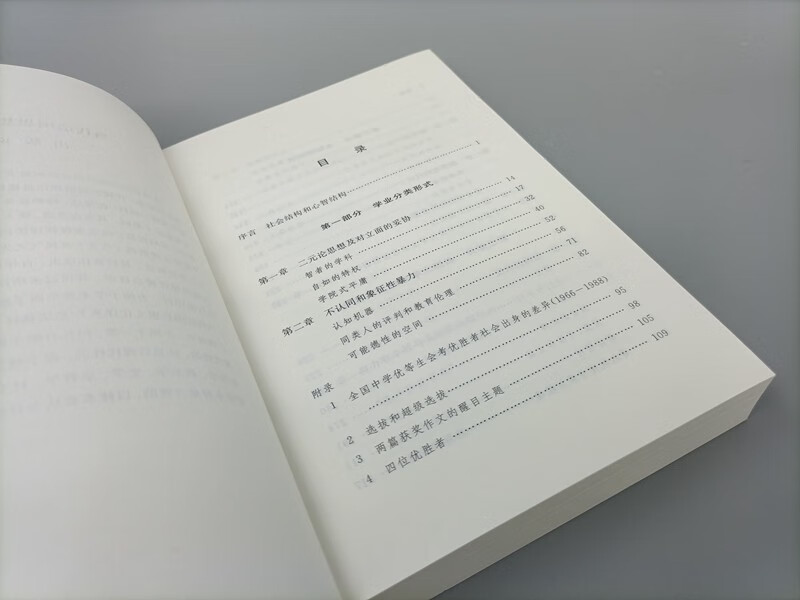 目 录
序言 社会结构和心智结构 1
第一部分 学业分类形式
第一章 二元论思想及对立面的妥协 14
智者的学科 17
自如的特权 32
学院式平庸 40
第二章 不认同和象征性暴力 52
认知机器 56
同类人的评判和教育伦理 71
可能德性的空间 82
附录
1 全国中学优等生会考优胜者社会出身的差异(1966—1988)
95
2 选拔和超级选拔 98
3 两篇获奖作文的醒目主题 105
4 四位优胜者 109